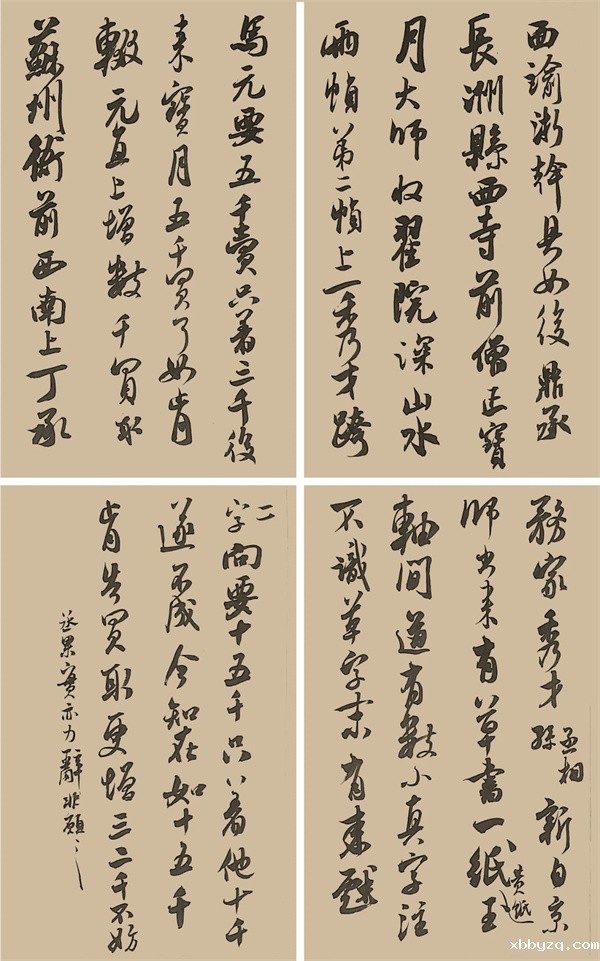 面諭浙幹具如後鼎丞
長洲縣西寺前僧正寶
月大師收翟院深山水
兩幀第二幀上一秀才跨
馬元要五千賣只著三千後
來寶月五千買了如肯
輟元直上增數千買取
蘇州衙前西南上丁承
務家秀才丞相孫新自京
師出來有草書一紙黃紙玉
軸間道有數小真字注
不識草字末有來戲
二字向要十五千只著他十千
遂不成今知在如十五千
肯告買取更增三二千不妨
丞果實亦力辭非願
xbbyzq.com